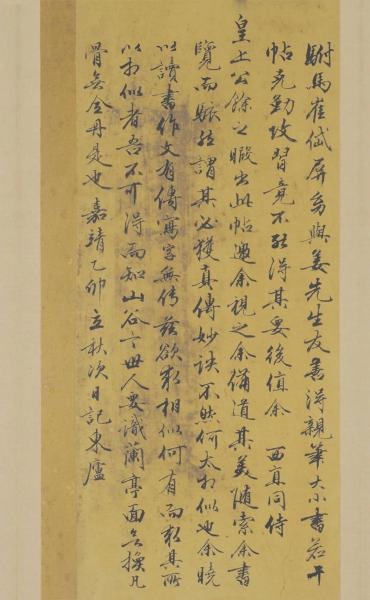 駙馬崔岱屏翁與姜先生友善得親筆大小書若干
帖克勤攻習竟不能得其要後值余 西直同侍
皇上公餘之暇出此帖邀余視之余備道其美隨索余書
覽而賑然謂其必獲真傳妙訣不然何太相似也余曉
以讀書作文有傳寫字無傳茲欲求相似何有而求其所
以相似者吾不可得而知山谷云世人要識蘭亭面無換凡
骨無金丹是也嘉靖乙卯立秋次日記東廬